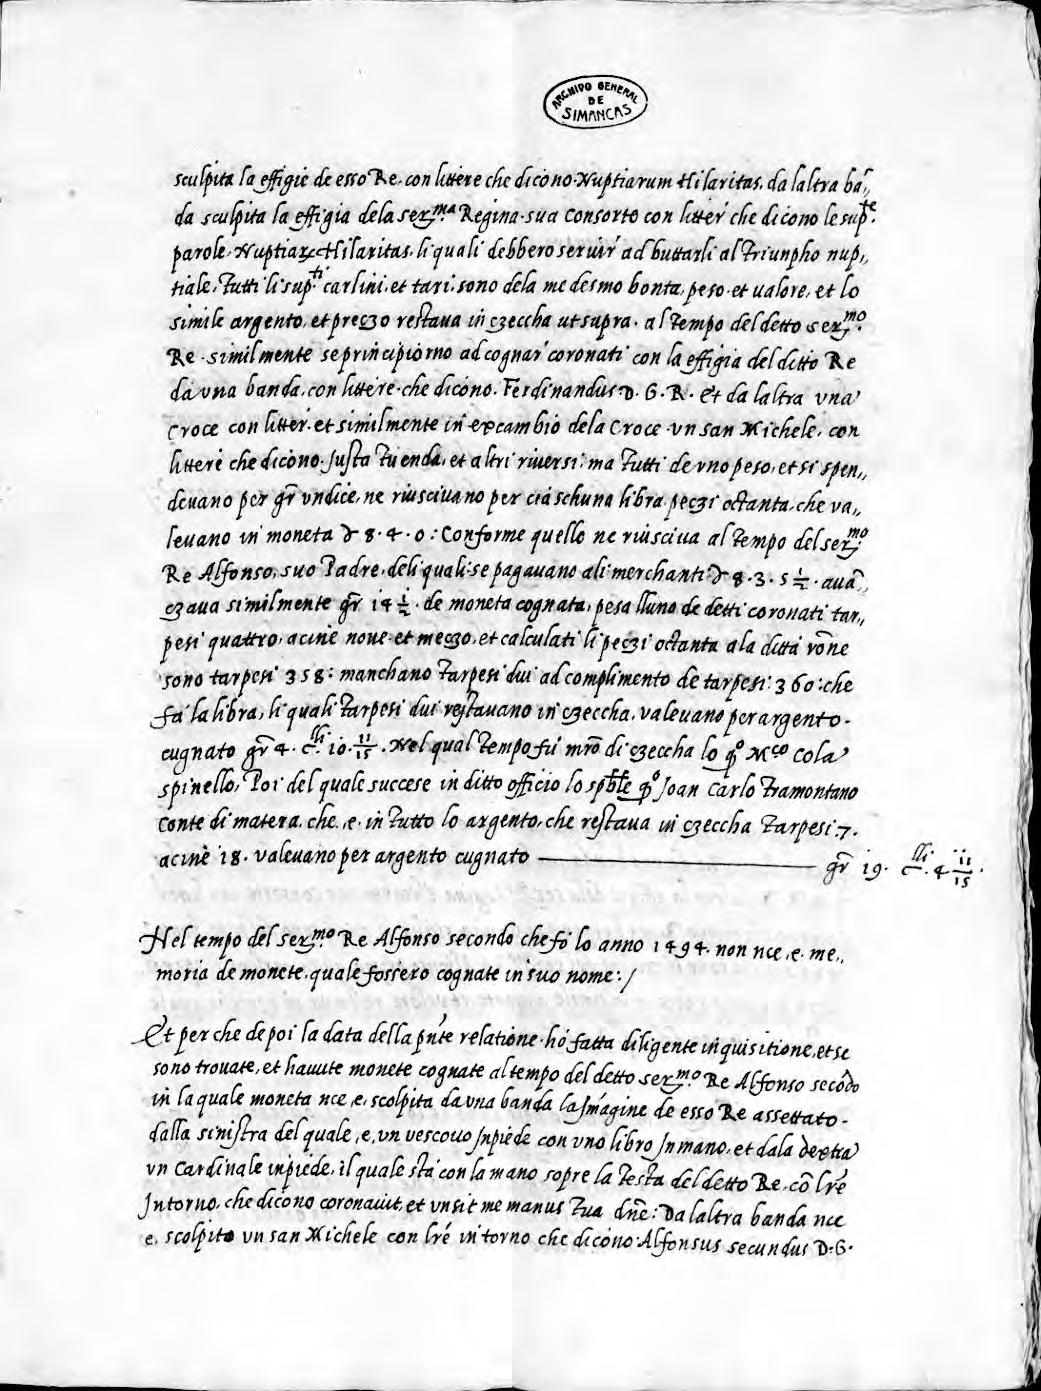 ARCHIVO GENERAL
DE
SIMANCAS
sculpita la effigie de esso Re. con littere che dicono. Nuptiarum Hilaritas. da laltra bã,,
da sculpita la effigia dela ser.ma Regina. sua Consorto con litter' che dicono le sup.te
parole. Nuptiaꝝ Hilaritas. li quali debbero seruir' ad buttarli al Triunpho nup,,
tiale. Tutti li sup.ti carlini. et tari. sono dela medesmo bonta, peso. et ualore, et lo
simile argento. et prezzo restaua in czeccha ut supra. al tempo del detto ser.mo
Re. similmente se principiorno ad cognar' coronati con la effigia del ditto Re
da vna banda. con littere. che dicono. Ferdinandus D. G. R. Et da laltra vna
Croce con litter. et similmente in excambio dela Croce. vn san Michele. con
littere che dicono: Justa Tuenda. et altri riuersi: ma Tutti de vno peso. et si spen,,
deuano per gr̃ vndice, ne riusciuano per ciaschuna libra. peczi octanta. che va,,
leuano in moneta D 8. 4. 0: Conforme quello ne riusciua al Tempo del ser.mo
Re Alfonso, suo Padre. deli quali se pagauano ali merchanti D 8. 3. 5 ½. auã,,
czaua similmente gr̃ 14 ½. de moneta cognata, pesa lluno de detti coronati tar,,
pesi quattro, acine noue et meczo, et calculati li peczi octanta ala ditta rõne
sono tarpesi 358: manchano Tarpesi dui ad complimento de tarpesi: 360: che
fa la libra, li quali Tarpesi dui restauano in czeccha, valeuano per argento.
cugnato gr̃ 4. c.lli 10. 11/15. Nel qual Tempo fu mrõ di czeccha lo qº Mco Cola
spinello. Poi del quale succese in ditto officio lo spble qº Joan Carlo Tramontano
Conte di matera. che. e. in Tutto lo argento. che restaua in czeccha Tarpesi: 7.
acine 18. valeuano per argento cugnato gr̃ 19. c.lli 4 11/15.
Nel tempo del ser.mo Re Alfonso secondo che fo lo anno 1494. non nce. e. me,,
moria de monete. quale fossero cognate in suo nome: /
Et per che depoi la data della pñte relatione. ho fatta diligente inquisitione. et se
sono trouate, et hauute monete cognate al tempo del detto ser.mo Re Alfonso secõdo
in la quale moneta nce. e. scolpita da vna banda la Jmagine de esso Re assettato.
dalla sinistra del quale. e. vn vescouo Jnpiede con vno libro Jn mano. et dala dextra
vn Cardinale inpiede. il quale sta con la mano sopre la Testa del detto Re. cõ lrẽ
Jntorno. che dicono coronauit, et vnsit me manus Tua dñe: Da laltra banda nce
e. scolpito vn san Michele con lrẽ intorno che dicono. Alfonsus secundus D. G.